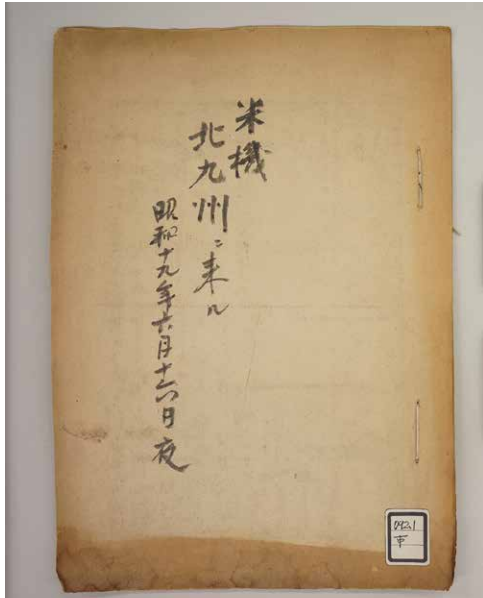 米機
北九州ニ来ル
昭和十九年六月十六日夜
092.1